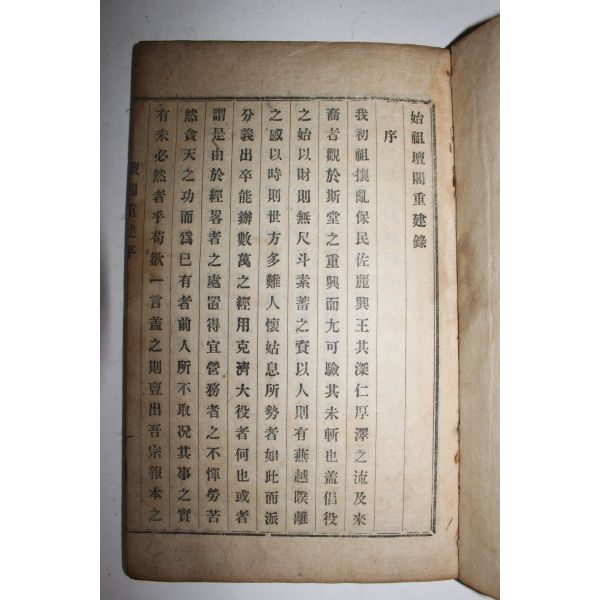 始祖壇閣重建錄
序
我初祖攘亂保民佐麗興王其深仁厚澤之流及來
裔者觀於斯堂之重興而尤可驗其未斬也盖倡役
之始以財則無尺斗素蓄之資以人則有燕越暌離
之感以時則世方多難人懷姑息所勢者如此而派
分義出卒能辦數萬之經用克濟大役者何也或者
謂是由於經畧者之處置得宜營務者之不憚勞苦
然貪天之功而爲已有者前人所不取况其事之實
有未必然者乎苟欲一言盖之則亶出吾宗報本之
壇閣重建序